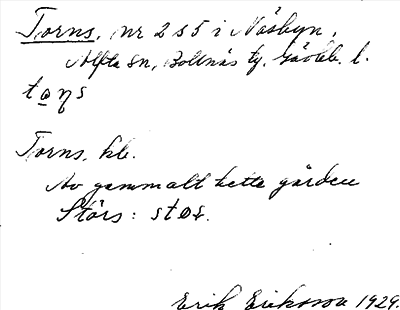 Torns, nr 2 s 5 i Näsbyn,
Alfta sn, Bollnäs tg. Gävleb. l.
tɷηs
Torns, hb.
Av gammalt hette gården
Störs: støs.
Erik Eriksson 1929.